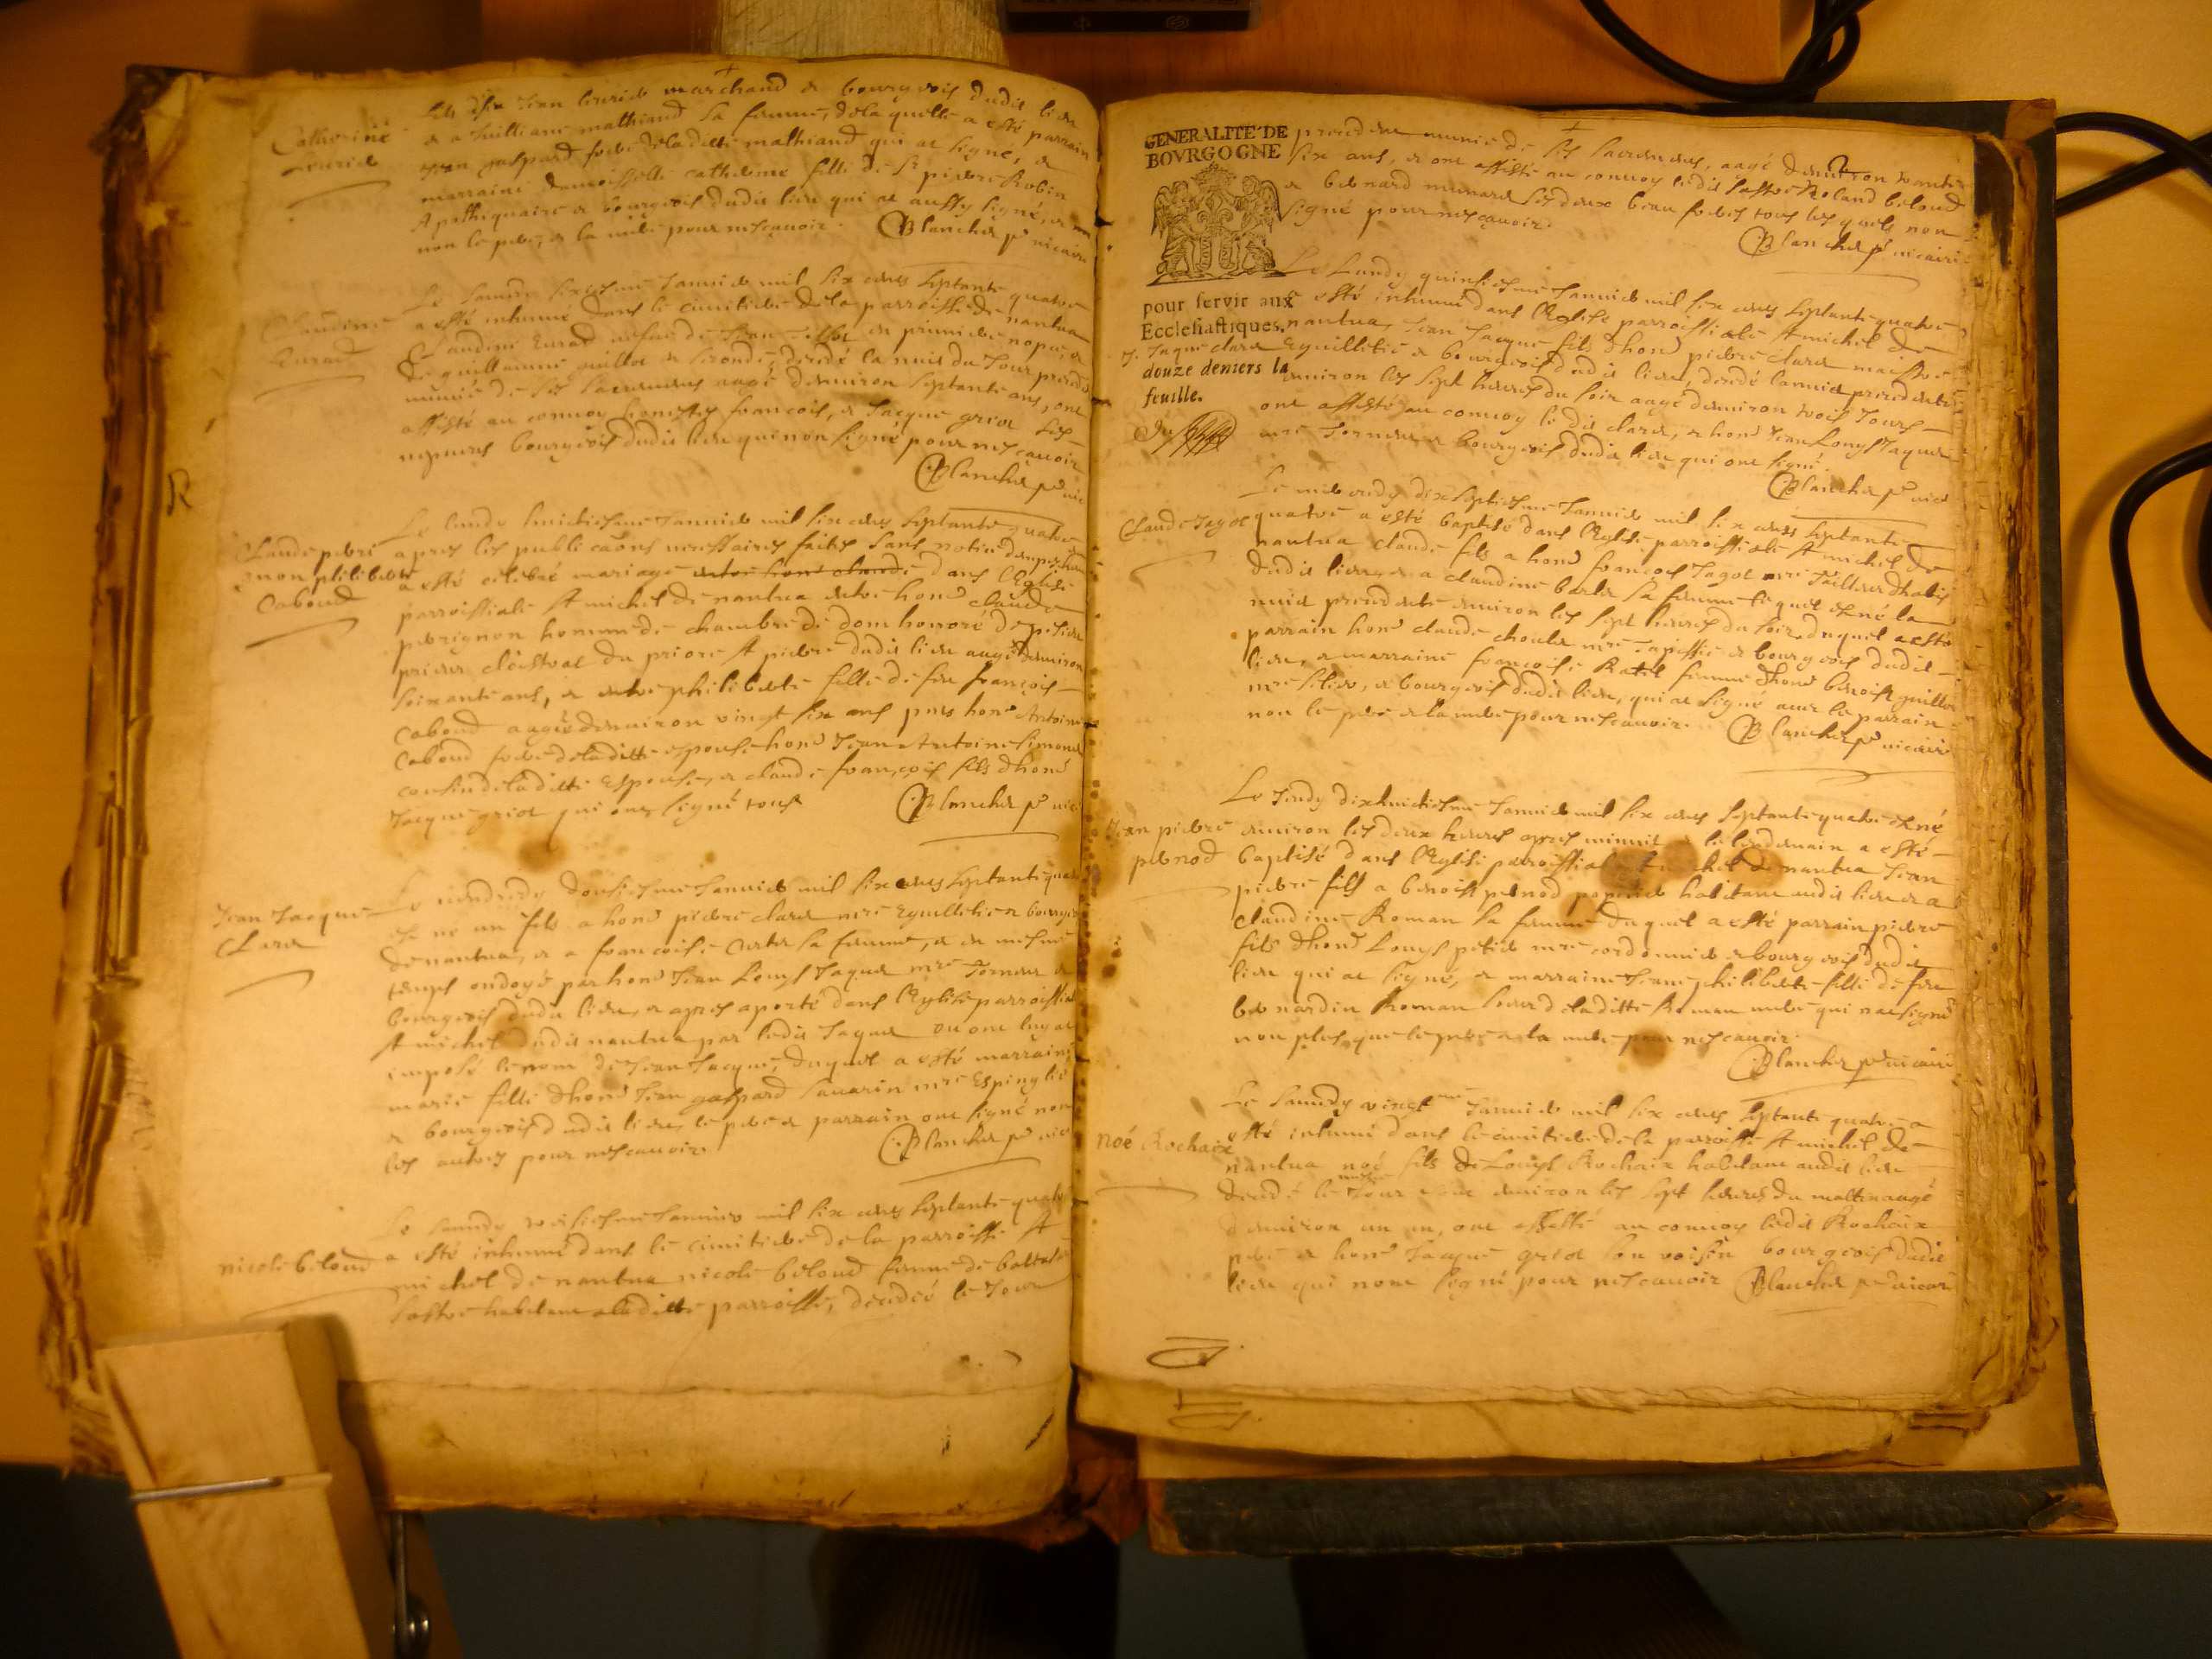 Catherine
filz dfeu Jean mercier marchand et bourgeois dudit lieu
et a Juilliane mathiand sa femme, de laquelle a esté parrain
Jean gaspard frere de laditte mathiand qui at signé, et
marraine damoiselle catherine fille de Sr pierre Robin
Apothiquaire et bourgeois dudit lieu qui at aussy signé, et
non le pere, et la mere pour ne scavoir. Blanchet pr vicaire
Claudine
Eurard
Le samedy sixiesme Janvier mil six cents septante quatre
a esté inhumé dans le cimitiere de la parroisse de nantua
Claudine Eurard vefve de Jean en premiere nopce, et
de guillaume guillot en seconde, decedé la nuit du Jour precedent
munie de ses sacremens aagé denviron septante ans, ont
assisté au convoy honestes francois, et Jacque griot ses
nepveurs bourgeois dudit lieu qui non signé pour ne scavoir
Blanchet pr vic
R
Claude perri
gnon philiberte
Caboud
Le lundy huictiesme Janvier mil six cents septante quatre
apres les publications necessaires faites sans
a esté celebré mariage entre hond claude dans l'Eglise
parroissiale St michel de nantua entre hond claude
perrignon homme de chambre de dom honoré
prieur cloistral du prioré St pierre dudit lieu aagé denviron
soixante ans, et entre philiberte fille de feu françois
Caboud aagée denviron vingt six ans pnts hond Antoine
Caboud frere de laditte espouse hond Jean Antoine Simond
cousin de laditte Espouse, et claude françois fils dhond
Jacque griot qui ont signé tous Blanchet pr vic
Jean Jacque
Clara
Le vendredy dousiesme Janvier mil six cents septante quatre
est né un fils a hond pierre clara mre Eguilletier bourgeois
de nantua, et a francoise sa femme, et en mesme
temps ondoyé par hond Jean Louys Jaquet mre Torneur et
bourgeois dudit lieu, et apres aporté dans l'Eglise parroissiale
St michel dudit nantua par ledit Jaquet ou ont luy at
imposé le nom de Jean Jacque, duquel a esté marraine
marie fille dhond Jean gaspard Savarin mre Espinglier
et bourgeois dudit lieu, le pere et parrain ont signé non
les autres pour ne scavoir. Blanchet pr vic
nicole beloud
Le samedy treisiesme Janvier mil six cents septante quatre
a esté inhumé dans le cimitiere de la parroisse St
michel de nantua nicole beloud femme de
Sastre habitant a laditte parroisse, decedée le Jour
GENERALITE' DE
BOVRGOGNE
pour servir aux
Ecclesiastiques.
douze deniers la
feuille.
precedent munie de ses sacremens, aagé denviron trante
six ans, et ont assisté au convoy ledit Sastre Roland beloud
et bernard munard ses deux beau freres tous lesquels non
signé pour ne scavoir.
Blanchet pr vicaire
J. Jaque clara
Le Lundy quinsiesme Janvier mil six cents septante quatre
a esté inhumé dans l'Eglise parroissiale St michel de
nantua, Jean Jacque fils dhond pierre clara maistre
Eguilletier et bourgeois dudit lieu, decedé la nuit precedente
environ les sept heures du soir aagé denviron trois Jours
ont assisté au convoy ledit clara, et hond Jean Louys Jaquet
mre Torneur et bourgeois dudit lieu qui ont signé.
Blanchet pr vic
Claude Jagot
Le mercredy dix septiesme Janvier mil six cents septante
quatre a esté baptisé dans l'Eglise parroissiale St michel de
nantua claude fils a hond françois Jagot mre Tailleur dhabis
dudit lieu, et a claudine sa femme lequel est né la
nuit precedente environ les sept heures du soir, duquel a esté
parrain hond claude mre Tapissier et bourgeois dudit
lieu, et marraine francoise Ratel femme dhond benoist guillot
mre et bourgeois dudit lieu, qui at signé avec le parrain
non le pere et la mere pour ne scavoir. Blanchet pr vicaire
Jean pierre
pernod
Le Jeudy dixhuictiesme Janvier mil six cents septante quatre est né
environ les deux heures apres minuit et le lendemain a esté
baptisé dans l'Eglise parroissiale St michel de nantua Jean
pierre fils a benoist pernod habitant audit lieu et a
claudine Roman sa femme duquel a esté parrain pierre
fils dhond Louys petit mre cordonnier et bourgeois dudit
lieu qui at signé, et marraine Jeanne philiberte fille de feu
bernardin Roman soeur de laditte Roman mere qui nat signé
non plus que le pere et la mere pour ne scavoir.
Blanchet pr vicaire
Noé Rochaix
Le samedy vingt me Janvier mil six cents septante quatre a
esté inhumé dans le cimitiere de la parroisse St michel de
nantua noé fils de Louys Rochaix habitant audit lieu
decedé le Jour environ les sept heures du matin aagé
denviron un an, ont assisté au convoy ledit Rochaix
pere et hond Jacque griot son voisin bourgeois dudit
lieu qui nont signé pour ne scavoir Blanchet pr vicaire